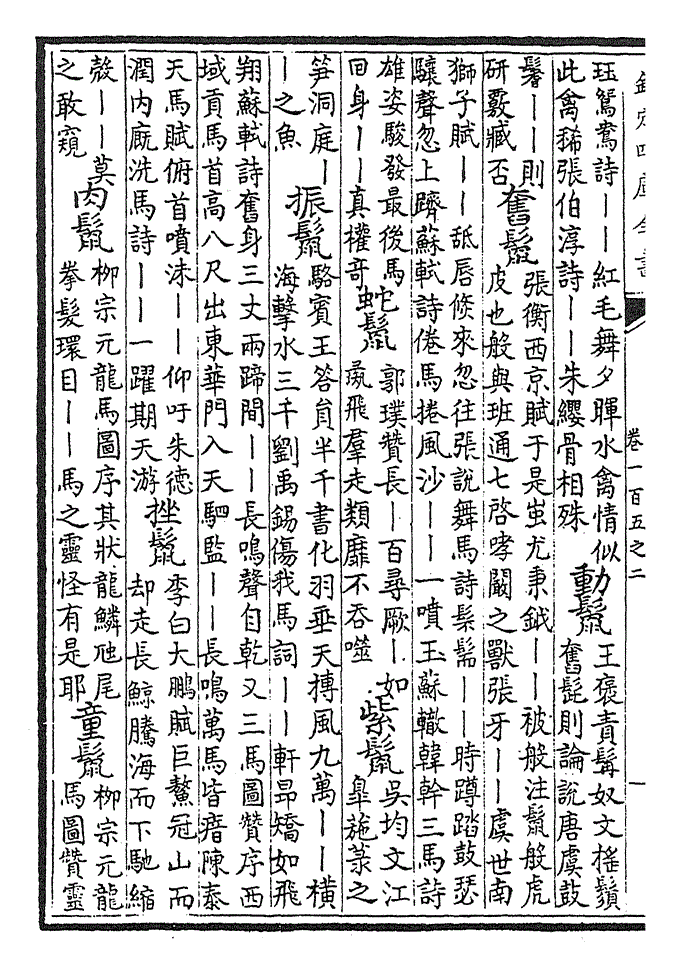 欽定四庫全書
卷一百五之二
一
珏鴛鴦詩——紅毛舞夕暉水禽情似
此禽稀張伯淳詩——朱纓骨相殊
動鬣
王褒責髯奴文搖鬚
奮髭則論說唐虞鼓
鬐——則
研覈臧否
奮鬣
張衡西京賦于是蚩尤秉鉞——被般注鬣般虎
皮也般與班通七啓哮闞之獸張牙——虞世南
獅子賦——舐唇倐來忽往張說舞馬詩髤髵——時蹲踏鼓瑟
驤聲忽上躋蘇軾詩倦馬捲風沙——一噴玉蘇轍韓幹三馬詩
雄姿駿發最後馬
回身——真權奇
蛇鬣
郭璞贊長—百尋厥—如
彘飛羣走類靡不吞噬
紫鬣
吳均文江
皐施菉之
笋洞庭—
—之魚
振鬣
駱賓王答員半千書化羽垂天摶風九萬——橫
海擊水三千劉禹錫傷我馬詞——軒昂矯如飛
翔蘇軾詩奮身三丈兩蹄間——長鳴聲自乾又三馬圖贊序西
域貢馬首高八尺出東華門入天駟監——長鳴萬馬皆瘖陳泰
天馬賦俯首噴沫——仰吁朱德
潤内厩洗馬詩——一躍期天游
挫鬣
李白大鵬賦巨鰲冠山而
却走長鯨騰海而下馳縮
殼——莫
之敢窺
肉鬣
柳宗元龍馬圖序其狀龍鱗虺尾
拳髮環目——馬之靈怪有是耶
童鬣
柳宗元龍
馬圖贊靈